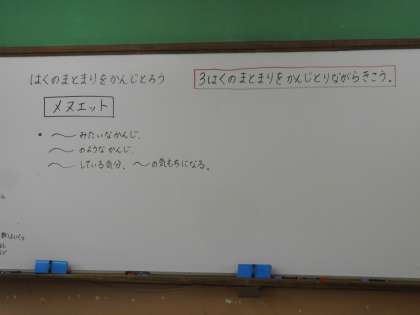 はくのまとまりをかんじとろう
3はくのまとまりをかんじとりながらきこう。
メヌエット
・〜みたいなかんじ。
〜のようなかんじ。
〜している気分、〜の気もちになる。